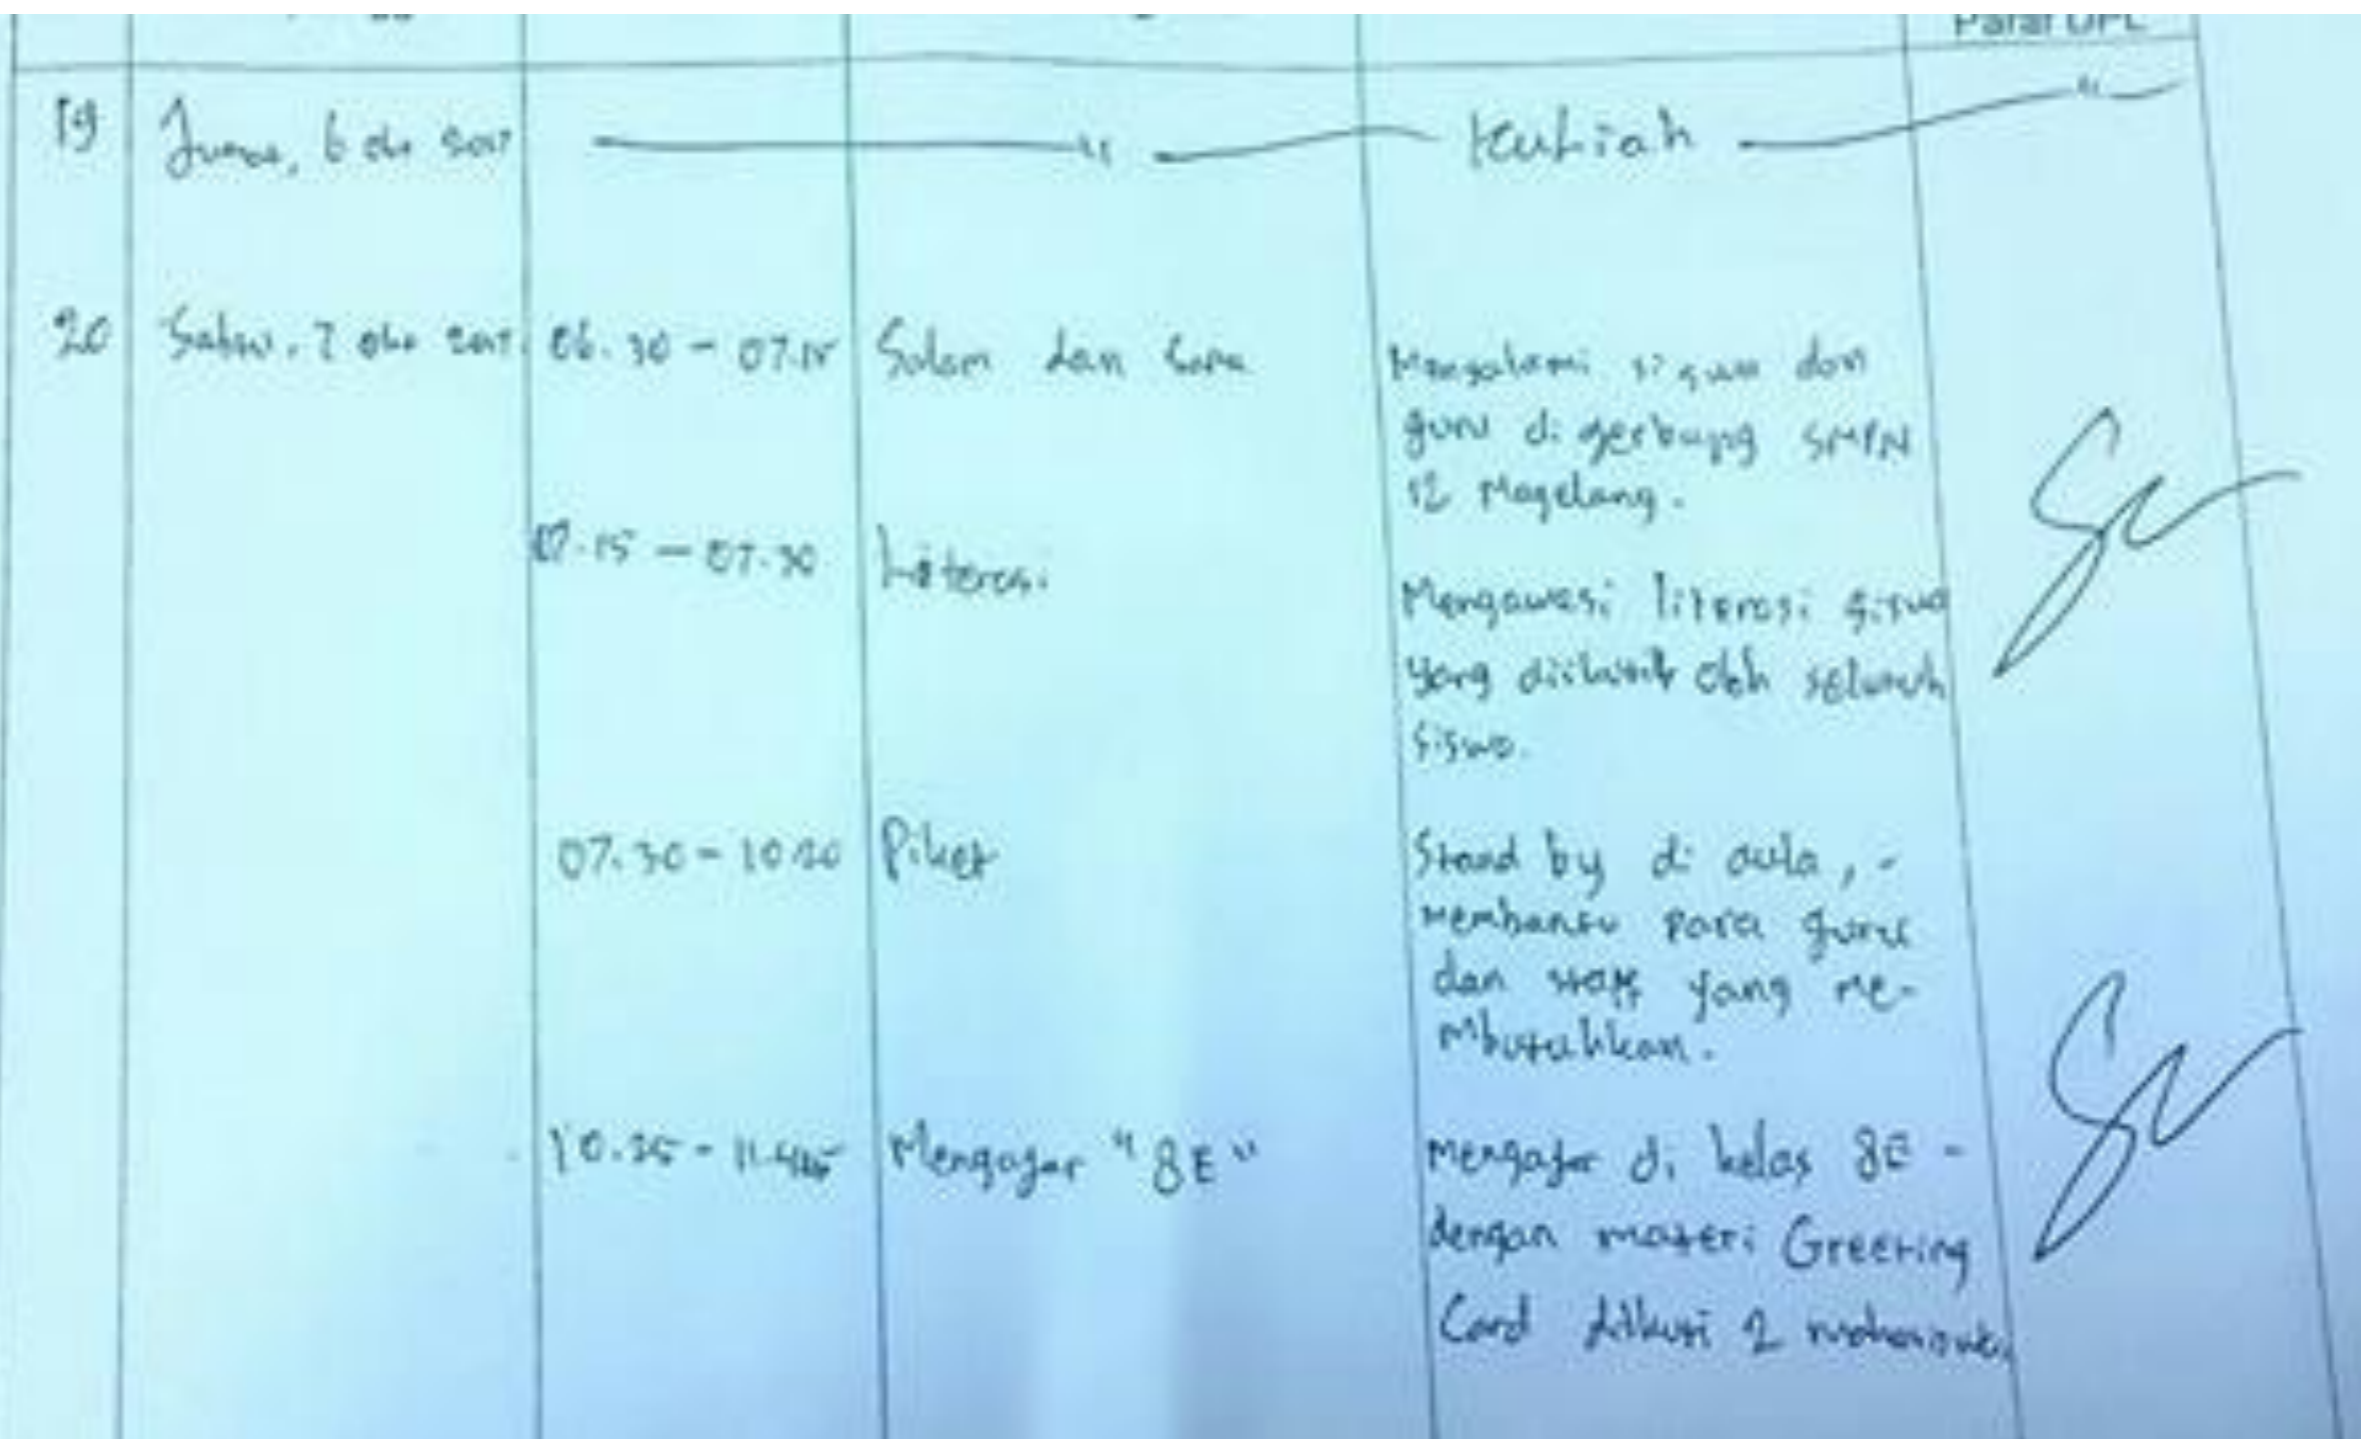 Paraf DPL
19 Jumat, 6 okt 2017 Kuliah
20 Sabtu, 7 okt 2017 06.30 - 07.15 Salam dan Sapa
Menyalami siswa dan
guru di gerbang SMPN
12 Magelang.
07.15 - 07.30 Literasi
Mengawasi literasi siswa
yang diikuti oleh seluruh
siswa.
07.30 - 10.20 Piket
Stand by di aula, -
membantu para guru
dan staff yang me-
mbutuhkan.
10.25 - 11.45 Mengajar "8E"
mengajar di kelas 8E -
dengan materi Greeting
Card diikuti 2 mahasiswa.